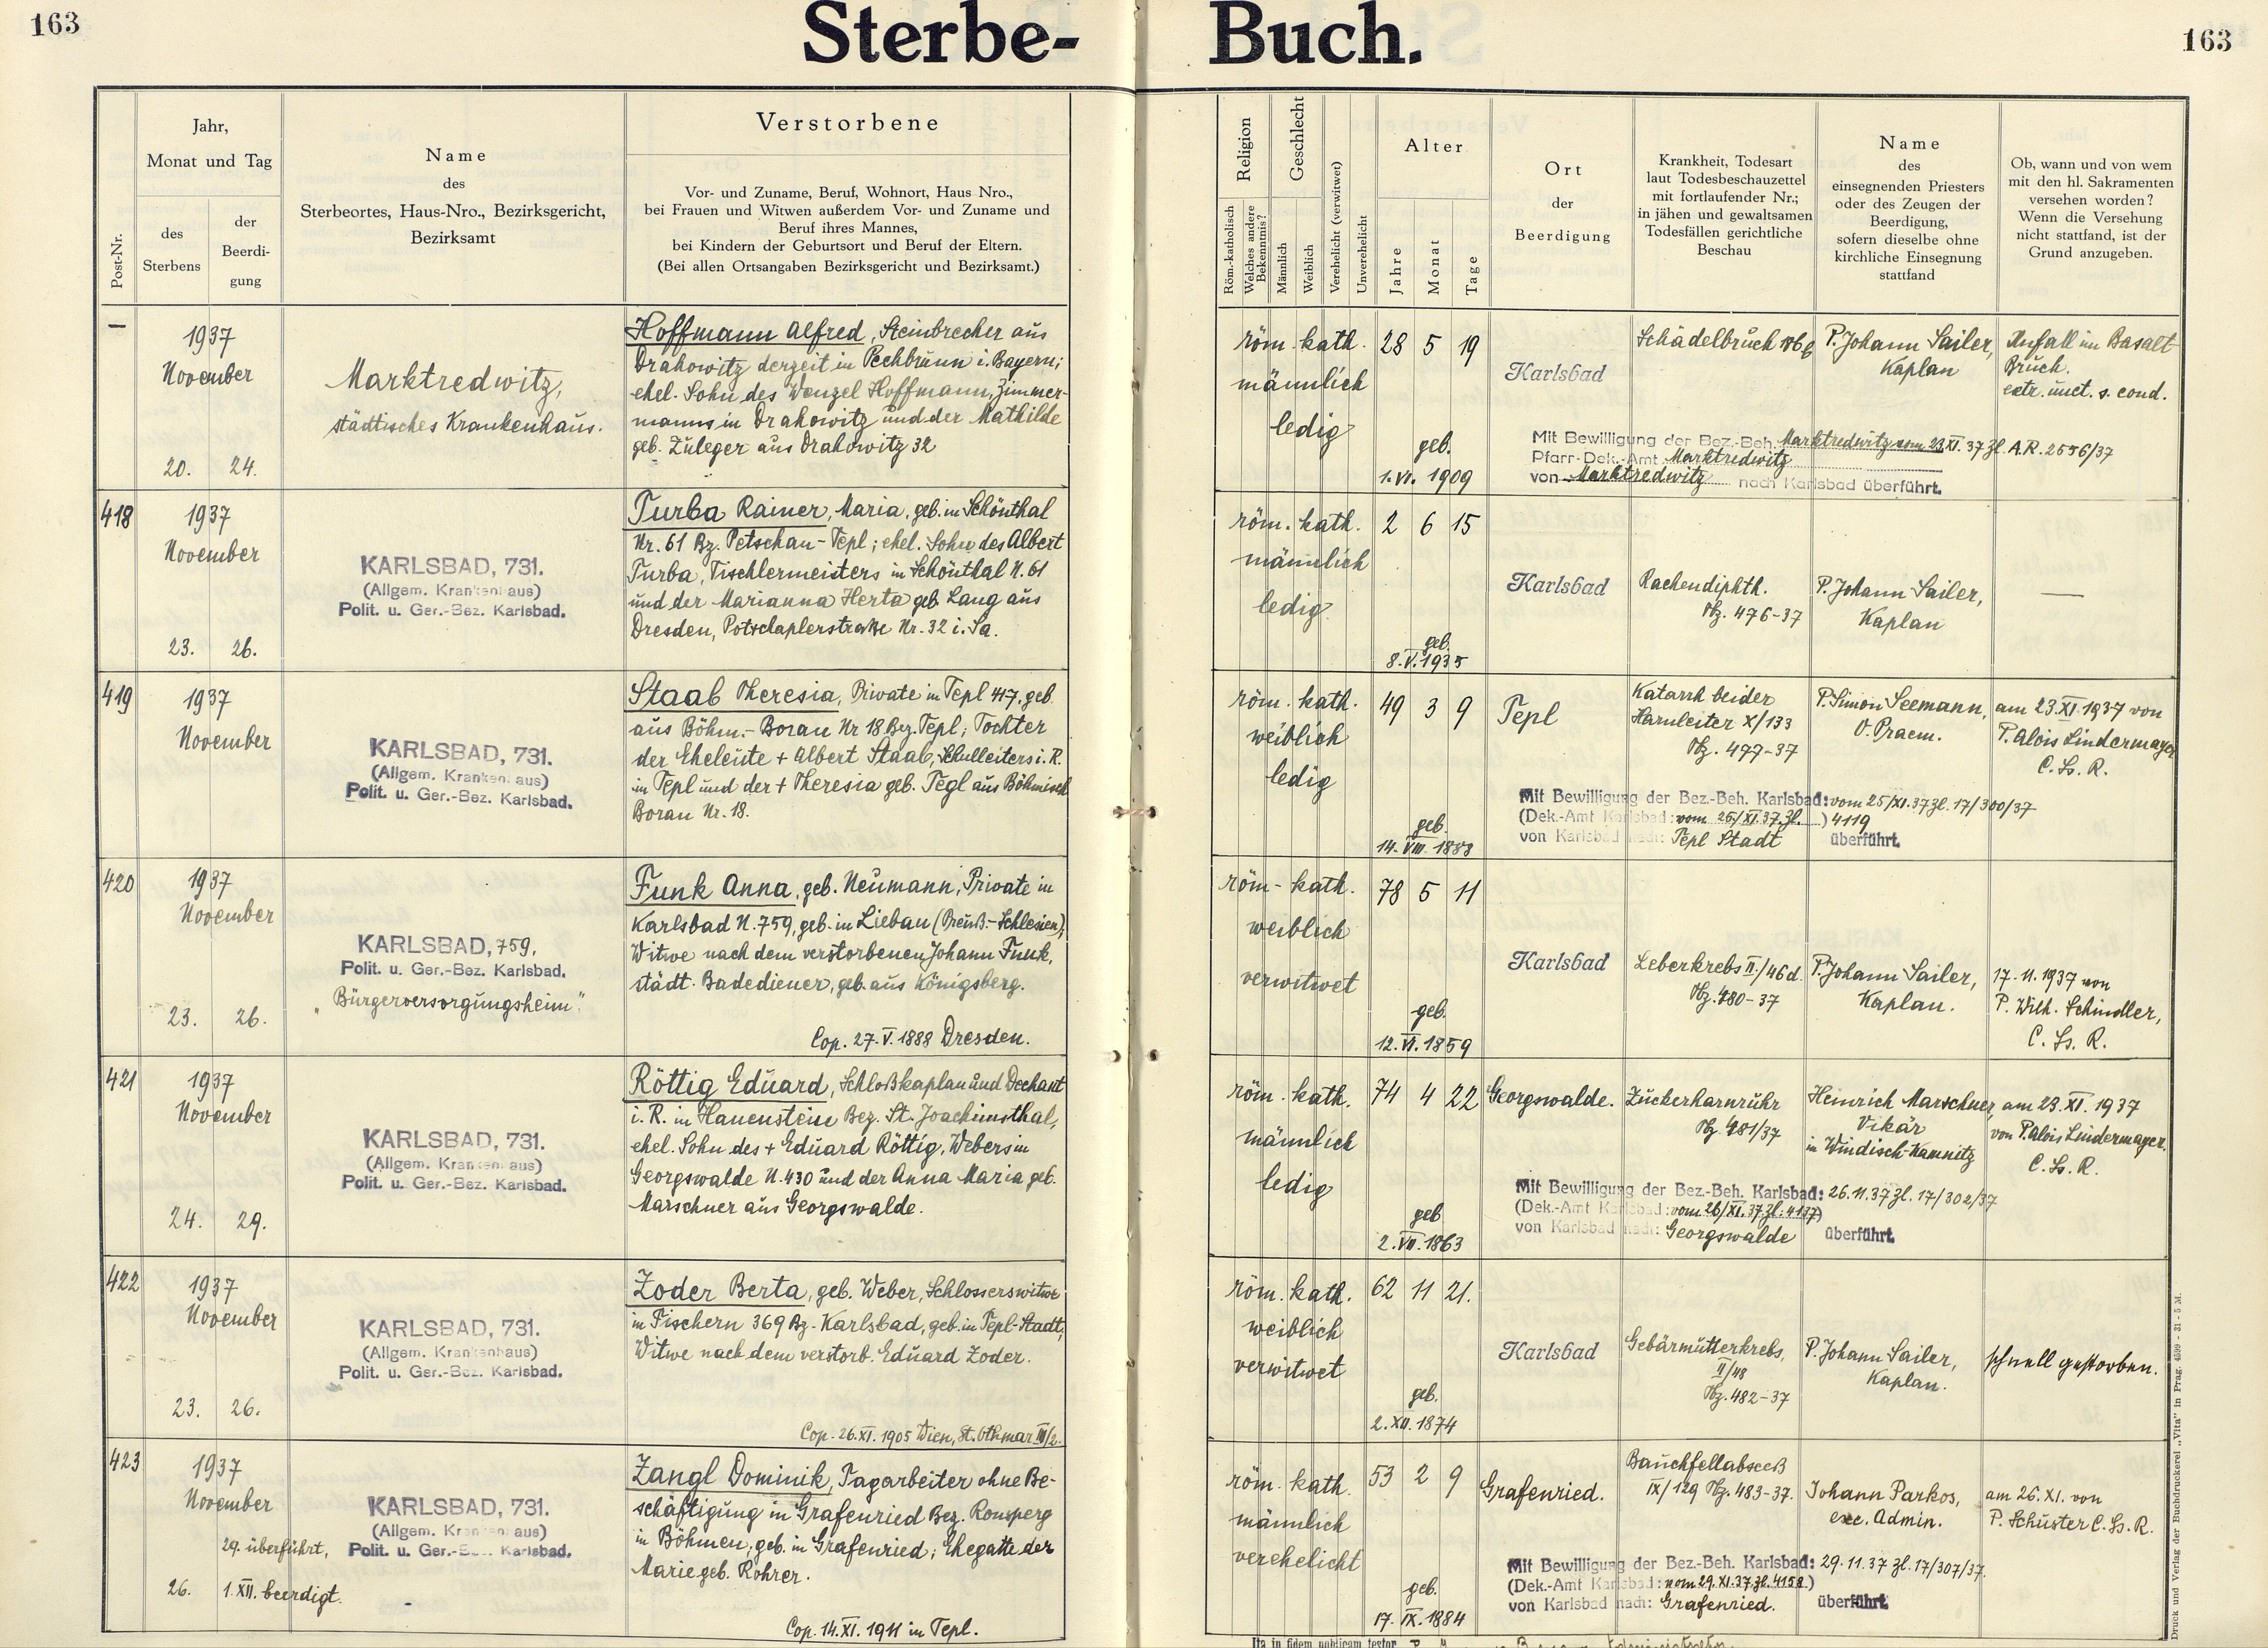 163
Sterbe- Buch.
163
Post-Nr.
Jahr,
Monat und Tag
des
Sterbens
der
Beerdi-
gung
Name
des
Sterbeortes, Haus-Nro., Bezirksgericht,
Bezirksamt
Verstorbene
Vor- und Zuname, Beruf, Wohnort, Haus Nro.,
bei Frauen und Witwen außerdem Vor- und Zuname und
Beruf ihres Mannes,
bei Kindern der Geburtsort und Beruf der Eltern.
(Bei allen Ortsangaben Bezirksgericht und Bezirksamt.)
Religion
Röm.-katholisch
Welches andere
Bekenntnis?
Geschlecht
Männlich
Weiblich
Verehelicht (verwitwet)
Unverehelicht
Alter
Jahre
Monat
Tage
Ort
der
Beerdigung
Krankheit, Todesart
laut Todesbeschauzettel
mit fortlaufender Nr.;
in jähen und gewaltsamen
Todesfällen gerichtliche
Beschau
Name
des
einsegnenden Priesters
oder des Zeugen der
Beerdigung,
sofern dieselbe ohne
kirchliche Einsegnung
stattfand
Ob, wann und von wem
mit den hl. Sakramenten
versehen worden?
Wenn die Versehung
nicht stattfand, ist der
Grund anzugeben.
—
1937
November
20. 24.
Marktredwitz,
städtisches Krankenhaus.
Hoffmann Alfred, Steinbrecher aus
Drahowitz derzeit in Pechbrunn i. Bayern;
ehel. Sohn des Wenzel Hoffmann, Zimmer-
manns in Drahowitz und der Mathilde
geb. Zuleger aus Drahowitz 32
röm. kath.
männlich
ledig
28 5 19
geb.
1. VI. 1909
Karlsbad
Schädelbruch
P. Johann Sailer,
Kaplan
Unfall im Basalt
Bruch.
extr. unct. s. cond.
Mit Bewilligung der Bez.-Beh. Marktredwitz vom 23 XI. 37 Zl. A.R. 2556/37
Pfarr-Dek.-Amt Marktredwitz
von Marktredwitz nach Karlsbad überführt.
418
1937
November
23. 26.
KARLSBAD, 731.
(Allgem. Krankenhaus)
Polit. u. Ger.-Bez. Karlsbad.
Turba Rainer, Maria, geb. in Schönthal
Nr. 61 Bz. Petschau-Tepl; ehel. Sohn des Albert
Turba, Tischlermeisters in Schönthal N. 61
und der Marianna Herta geb. Lang aus
Dresden, Potschaplerstraße Nr. 32 i. Sa.
röm. kath.
männlich
ledig
2 6 15
geb.
8. V. 1935
Karlsbad
Rachendiphth.
Tbz. 476-37
P. Johann Sailer,
Kaplan
—
419
1937
November
KARLSBAD, 731.
(Allgem. Krankenhaus)
Polit. u. Ger.-Bez. Karlsbad.
Staab Theresia, Private in Tepl 417, geb.
aus Böhm.-Borau Nr 18 Bez. Tepl; Tochter
der Eheleute + Albert Staab, Schulleiters i. R.
in Tepl und der + Theresia geb. Tegl aus Böhmisch
Borau Nr. 18.
röm. kath.
weiblich
ledig
49 3 9
geb.
14. VIII. 1888
Tepl
Katarrh beider
Harnleiter X/133
Tbz. 477-37
P. Simon Seemann,
O. Praem.
am 23. XI. 1937 von
P. Alois Lindermayer
C. Ss. R.
Mit Bewilligung der Bez.-Beh. Karlsbad: vom 25/XI. 37 Zl. 17/300/37
(Dek.-Amt Karlsbad: vom 25/XI. 37. Zl. ) 4119
von Karlsbad nach: Tepl Stadt überführt.
420
1937
November
23. 26.
KARLSBAD, 759,
Polit. u. Ger.-Bez. Karlsbad.
"Bürgerversorgungsheim".
Funk Anna, geb. Neumann, Private in
Karlsbad N. 759, geb. in Liebau (Preuß.-Schlesien),
Witwe nach dem verstorbenen Johann Funk,
städt. Badediener, geb. aus Königsberg.
Cop. 27. V. 1888 Dresden.
röm-kath.
weiblich
verwitwet
78 5 11
geb.
12. VI. 1859
Karlsbad
Leberkrebs II./46 d.
Tbz. 480-37
P. Johann Sailer,
Kaplan.
17. 11. 1937 von
P. Wilh. Schindler,
C. Ss. R.
421
1937
November
24. 29.
KARLSBAD, 731.
(Allgem. Krankenhaus)
Polit. u. Ger.-Bez. Karlsbad.
Röttig Eduard, Schloßkaplan und Dechant
i. R. in Hauenstein Bez. St. Joachimsthal,
ehel. Sohn des + Eduard Röttig, Webers in
Georgswalde N. 430 und der Anna Maria geb.
Marschner aus Georgswalde.
röm. kath.
männlich
ledig
74 4 22
geb
2. VII. 1863
Georgswalde.
Zuckerharnruhr
Tbz. 481/37
Heinrich Marschner
Vikär
in Windisch-Kamnitz
am 23. XI. 1937
von P. Alois Lindermayer.
C. Ss. R.
Mit Bewilligung der Bez.-Beh. Karlsbad: 26. 11. 37 Zl. 17/302/37
(Dek.-Amt Karlsbad: vom 26/XI. 37. Zl: 4137)
von Karlsbad nach: Georgswalde überführt.
422
1937
November
23. 26.
KARLSBAD, 731.
(Allgem. Krankenhaus)
Polit. u. Ger.-Bez. Karlsbad.
Zoder Berta, geb. Weber, Schlosserswitwe
in Fischern 369 Bz. Karlsbad, geb. in Tepl-Stadt,
Witwe nach dem verstorb. Eduard Zoder.
Cop. 26. XI. 1905 Wien, St. Othmar III/2.
röm. kath.
weiblich
verwitwet
62 11 21.
geb.
2. XII. 1874
Karlsbad
Gebärmutterkrebs,
II/48
Tbz. 482-37
P. Johann Sailer,
Kaplan.
schnell gestorben.
423
1937
November
29. überführt,
26. 1. XII. beerdigt.
KARLSBAD, 731.
(Allgem. Krankenhaus)
Polit. u. Ger.-Bez. Karlsbad.
Zangl Dominik, Tagarbeiter ohne Be-
schäftigung in Grafenried Bez. Ronsperg
in Böhmen, geb. in Grafenried; Ehegatte der
Marie geb. Rohrer.
Cop. 14. XI. 1911 in Tepl.
röm. kath.
männlich
verehelicht
53 2 9
geb.
17. IX. 1884
Grafenried.
Bauchfellabsceß
IX/129 Tbz. 483-37.
Johann Parkos,
exc. Admin.
am 26. XI. von
P. Schuster C. Ss. R.
Mit Bewilligung der Bez.-Beh. Karlsbad: 29. 11. 37 Zl. 17/307/37.
(Dek.-Amt Karlsbad: vom 29. XI. 37. Zl. 4158.)
von Karlsbad nach: Grafenried. überführt.
Ita in fidem publicam testor
Druck und Verlag der Buchdruckerei „Vita" in Prag. 4599 - 31 - 5 M.